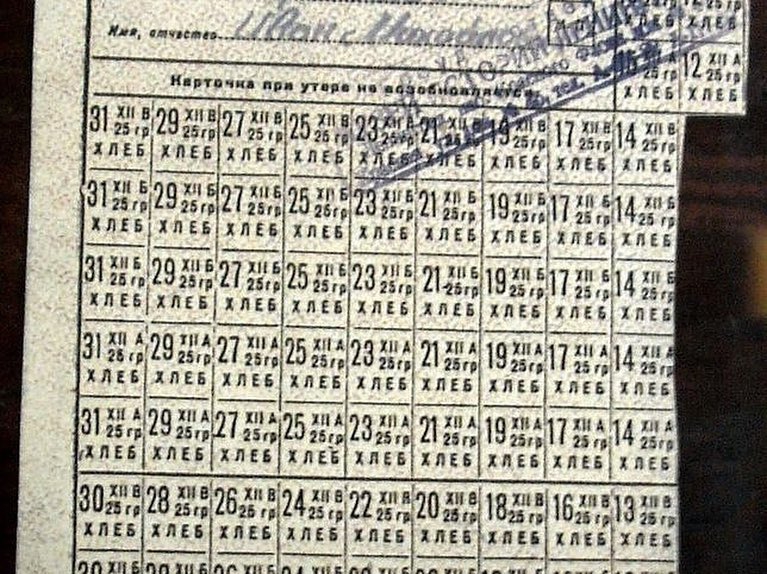 Имя, отчество Иван
Карточка при утере не возобновляется
12 XII А 25 гр
ХЛЕБ ХЛЕБ
31 XII В 25 гр 29 XII В 25 гр 27 XII В 25 гр 25 XII В 25 гр 23 21 19 XII В 25 гр 17 XII В 25 гр 14 XII В 25 гр
ХЛЕБ ХЛЕБ ХЛЕБ ХЛЕБ ХЛЕБ ХЛЕБ ХЛЕБ ХЛЕБ ХЛЕБ
31 XII Б 25 гр 29 XII Б 25 гр 27 XII Б 25 гр 25 XII Б 25 гр 23 XII Б 25 гр 21 XII Б 25 гр 19 XII Б 25 гр 17 XII Б 25 гр 14 XII Б 25 гр
ХЛЕБ ХЛЕБ ХЛЕБ ХЛЕБ ХЛЕБ ХЛЕБ ХЛЕБ ХЛЕБ ХЛЕБ
31 XII Б 25 гр 29 XII Б 25 гр 27 XII Б 25 гр 25 XII Б 25 гр 23 XII Б 25 гр 21 XII Б 25 гр 19 XII Б 25 гр 17 XII Б 25 гр 14 XII Б 25 гр
ХЛЕБ ХЛЕБ ХЛЕБ ХЛЕБ ХЛЕБ ХЛЕБ ХЛЕБ ХЛЕБ ХЛЕБ
31 XII А 25 гр 29 XII А 25 гр 27 XII А 25 гр 25 XII А 25 гр 23 XII А 25 гр 21 XII А 25 гр 19 XII А 25 гр 17 XII А 25 гр 14 XII А 25 гр
ХЛЕБ ХЛЕБ ХЛЕБ ХЛЕБ ХЛЕБ ХЛЕБ ХЛЕБ ХЛЕБ ХЛЕБ
31 XII А 25 гр 29 XII А 25 гр 27 XII А 25 гр 25 XII А 25 гр 23 XII А 25 гр 21 XII А 25 гр 19 XII А 25 гр 17 XII А 25 гр 14 XII А 25 гр
ХЛЕБ ХЛЕБ ХЛЕБ ХЛЕБ ХЛЕБ ХЛЕБ ХЛЕБ ХЛЕБ ХЛЕБ
30 XII В 25 гр 28 XII В 25 гр 26 XII В 25 гр 24 XII В 25 гр 22 XII В 25 гр 20 XII В 25 гр 18 XII В 25 гр 16 XII В 25 гр 13 XII В 25 гр
ХЛЕБ ХЛЕБ ХЛЕБ ХЛЕБ ХЛЕБ ХЛЕБ ХЛЕБ ХЛЕБ ХЛЕБ